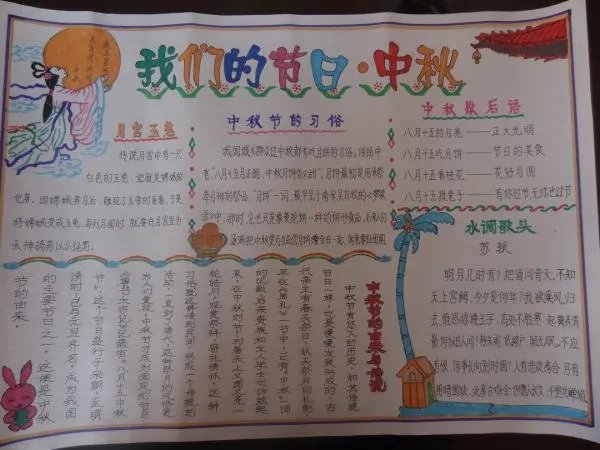 我们的节日·中秋
月宫玉兔
传说月宫中有一只
白色的玉兔,她就是嫦娥的
化身。因嫦娥奔月后,触犯玉帝的旨意,于是
将嫦娥变成玉兔,每到月圆时,就要在月宫里为
天神捣药以示惩罚。
中秋节的习俗
我国城乡群众过中秋都有吃月饼的习俗,俗话中
有:"八月十五月正圆,中秋月饼香又甜"。月饼最初是用来祭
奉月神的祭品,"月饼"一词,最早见于南宋吴自牧的《梦粱
录》中,那时,它也只是像菱花饼一样的饼形食品,后来人们
逐渐把中秋赏月与品尝月饼结合在一起,寓意家人团圆
中秋歇后语
八月十五的月亮——正大光明
八月十五吃月饼——节日的美食
八月十五看桂花——花好月圆
八月十五捉兔子——有你过节无你也过节
水调歌头
苏轼
明月几时有?把酒问青天,不知
天上宫阙,今夕是何年?我欲乘风归
去,惟恐琼楼玉宇,高处不胜寒,起舞弄清
影,何似在人间?转朱阁,低绮户,照无眠。不应
有恨,何事长向别时圆?人有悲欢离合,月有
阴晴圆缺,此事古难全。但愿人长久,千里共婵娟
中秋节的由来与传说
中秋节有悠久的历史,和其他传统
节日一样,也是慢慢发展形成的,古
代帝王有春天祭日,秋天祭月的礼制
早在《周礼》一书中,已有"中秋"一词
的记载。后来贵族和文人学士也仿效起
来,在中秋时节,对着天上又圆又亮一
轮皓月,观赏祭拜,寄托情怀,这种
习俗就这样传到民间,形成一个传统的
活动,一直到了唐代,这种祭月的风俗更
为人们重视,中秋节才成为固定的节日,
《唐书·太宗记》记载有"八月十五中秋
节",这个节日盛行于宋朝,至明
清时,已与元旦齐名,成为我国
的主要节日之一。这也是中秋
节的由来。